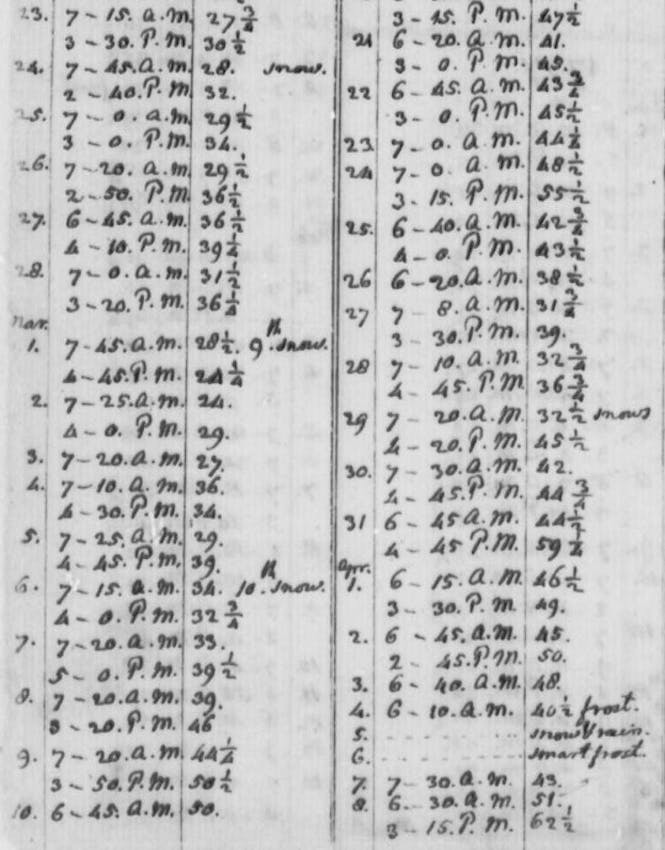 23. 7-15. a.m. 27 3/4
3-30. P.M. 30 1/2
24. 7-45. a.m. 28. snow.
2-40. P.M. 32.
25. 7-0 a.m. 29 1/2
3-0. P.M. 34.
26. 7-20. a.m. 29 1/2
2-50. P.M. 36 1/2
27. 6-45. a.m. 36 1/2
4-10. P.M. 39 1/4
28. 7-0. a.m. 31 1/2
3-20. P.M. 36 1/4
Mar.
1. 7-45. a.m. 28 1/2. 9th snow.
4-45. P.M. 24 1/4
2. 7-25. a.m. 24.
4-0. P.M. 29.
3. 7-20. a.m. 27.
4. 7-10. a.m. 36.
4-30. P.M. 34.
5. 7-25. a.m. 29.
4-45. P.M. 39.
6. 7-15. a.m. 34. 10th snow.
4-0. P.M. 32 3/4
7. 7-20. a.m. 33.
5-0. P.M. 39 1/2
8. 7-20. a.m. 39.
3-20. P.M. 46
9. 7-20. a.m. 44 1/4
3-50. P.M. 50 1/2
10. 6-45. a.m. 50.
3-15. P.M. 47 1/2
21 6-20. a.m. 41.
3-0. P.M. 49.
22 6-45. a.m. 43
3-0. P.M. 45 1/2
23. 7-0. a.m. 44
24 7-0. a.m. 48 1/2
3-15. P.M. 55 1/2
25. 6-40. a.m. 42 3/4
4-0. P.M. 43 1/2
26 6-20. a.m. 38 1/2
27 7-8. a.m. 31 3/4
3-30. P.M. 39.
28 7-10. a.m. 32 3/4
4-45. P.M. 36 3/4
29 7-20. a.m. 32 1/2 snows
4-20. P.M. 45 1/2
30. 7-30. a.m. 42.
4-45. P.M. 44
31 6-45 a.m. 44 1/2
4-45 P.M. 59
Apr.
1. 6-15. a.m. 46 1/2
3-30. P.M. 49.
2. 6-45. a.m. 45.
2-45. P.M. 50.
3. 6-40. a.m. 48.
4. 6-10. a.m. 40 1/2 frost.
5. snow & rain.
6. smart frost.
7. 7-30. a.m. 43.
8. 6-30. a.m. 51.
3-15. P.M. 62 1/2